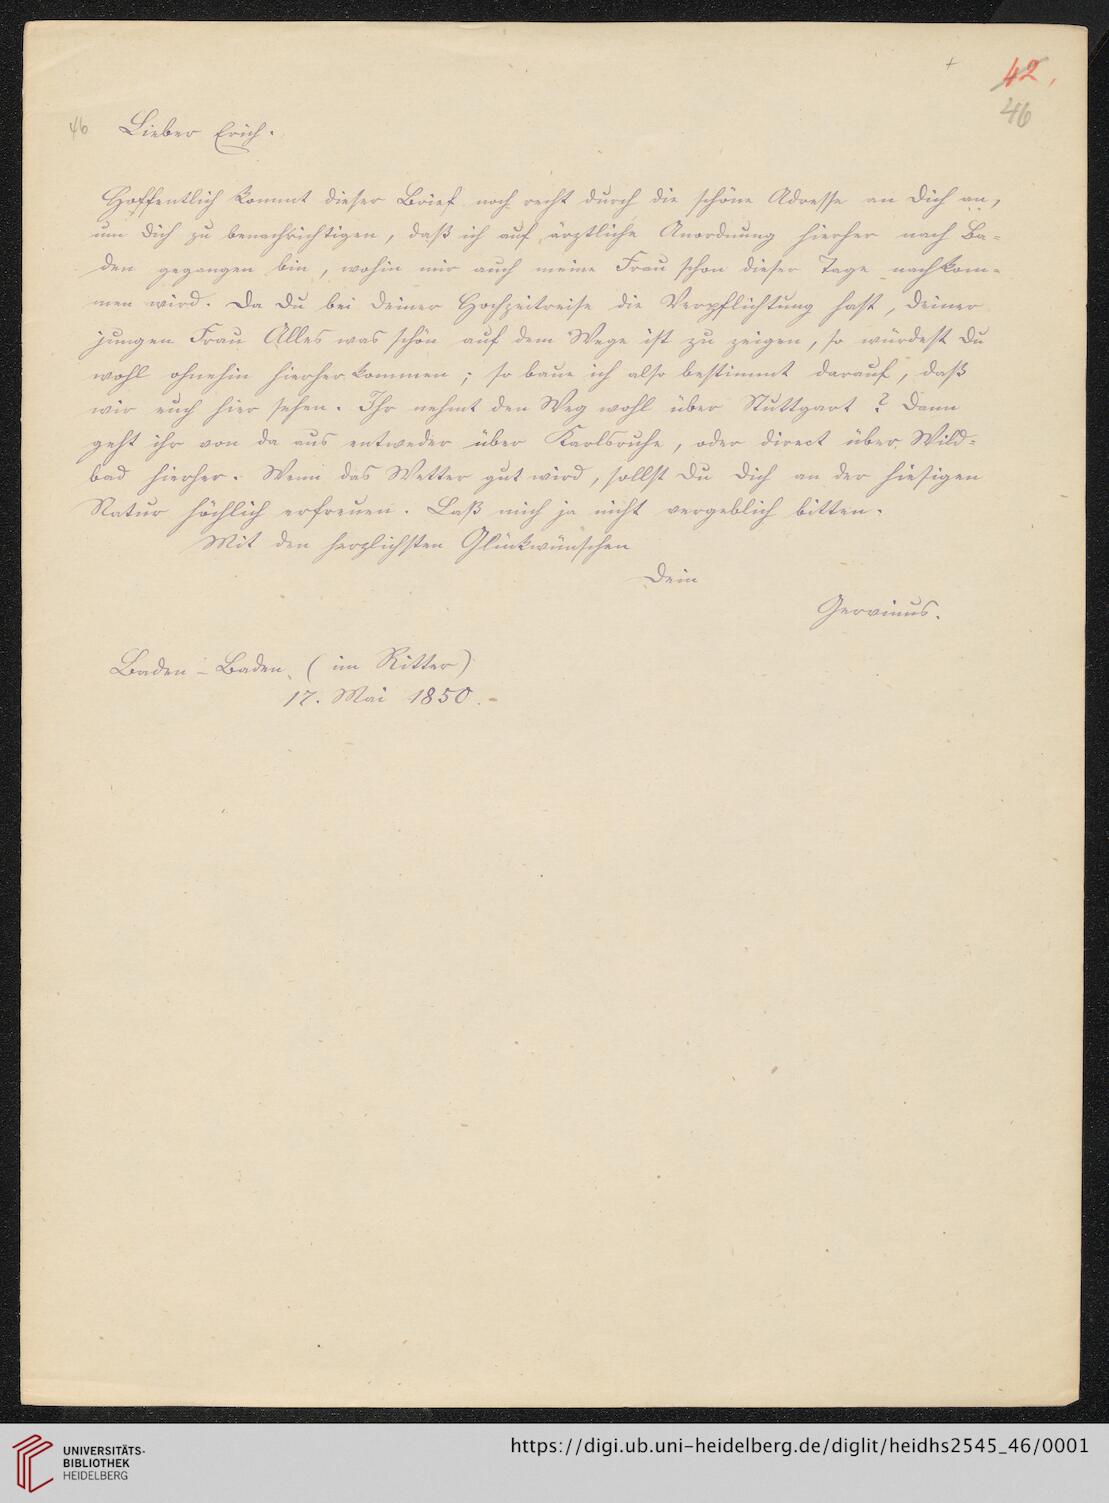 42.
46
46 Lieber Erich.
Hoffentlich kommt dieser Brief noch recht durch die schöne Adresse an Dich an,
um Dich zu benachrichtigen, daß ich auf ärztliche Anordnung hierher nach Ba-
den gegangen bin, wohin mir auch meine Frau schon dieser Tage nachkom-
men wird. Da Du bei Deiner Hochzeitreise die Verpflichtung hast, Deiner
jungen Frau Alles was schön auf dem Wege ist zu zeigen, so würdest Du
wohl ohnehin hierher kommen; so baue ich also bestimmt darauf, daß
wir euch hier sehen. Ihr nehmt den Weg wohl über Stuttgart? Dann
geht ihr von da aus entweder über Karlsruhe, oder direct über Wild-
bad hierher. Wenn das Wetter gut wird, sollst Du Dich an der hiesigen
Natur höchlich erfreuen. Laß mich ja nicht vergeblich bitten.
Mit den herzlichsten Glückwünschen
Dein
Gervinus.
Baden-Baden, (im Ritter)
17. Mai 1850.-
UNIVERSITÄTS-
BIBLIOTHEK
HEIDELBERG
https://digi.ub.uni-heidelberg.de/diglit/heidhs2545_46/0001